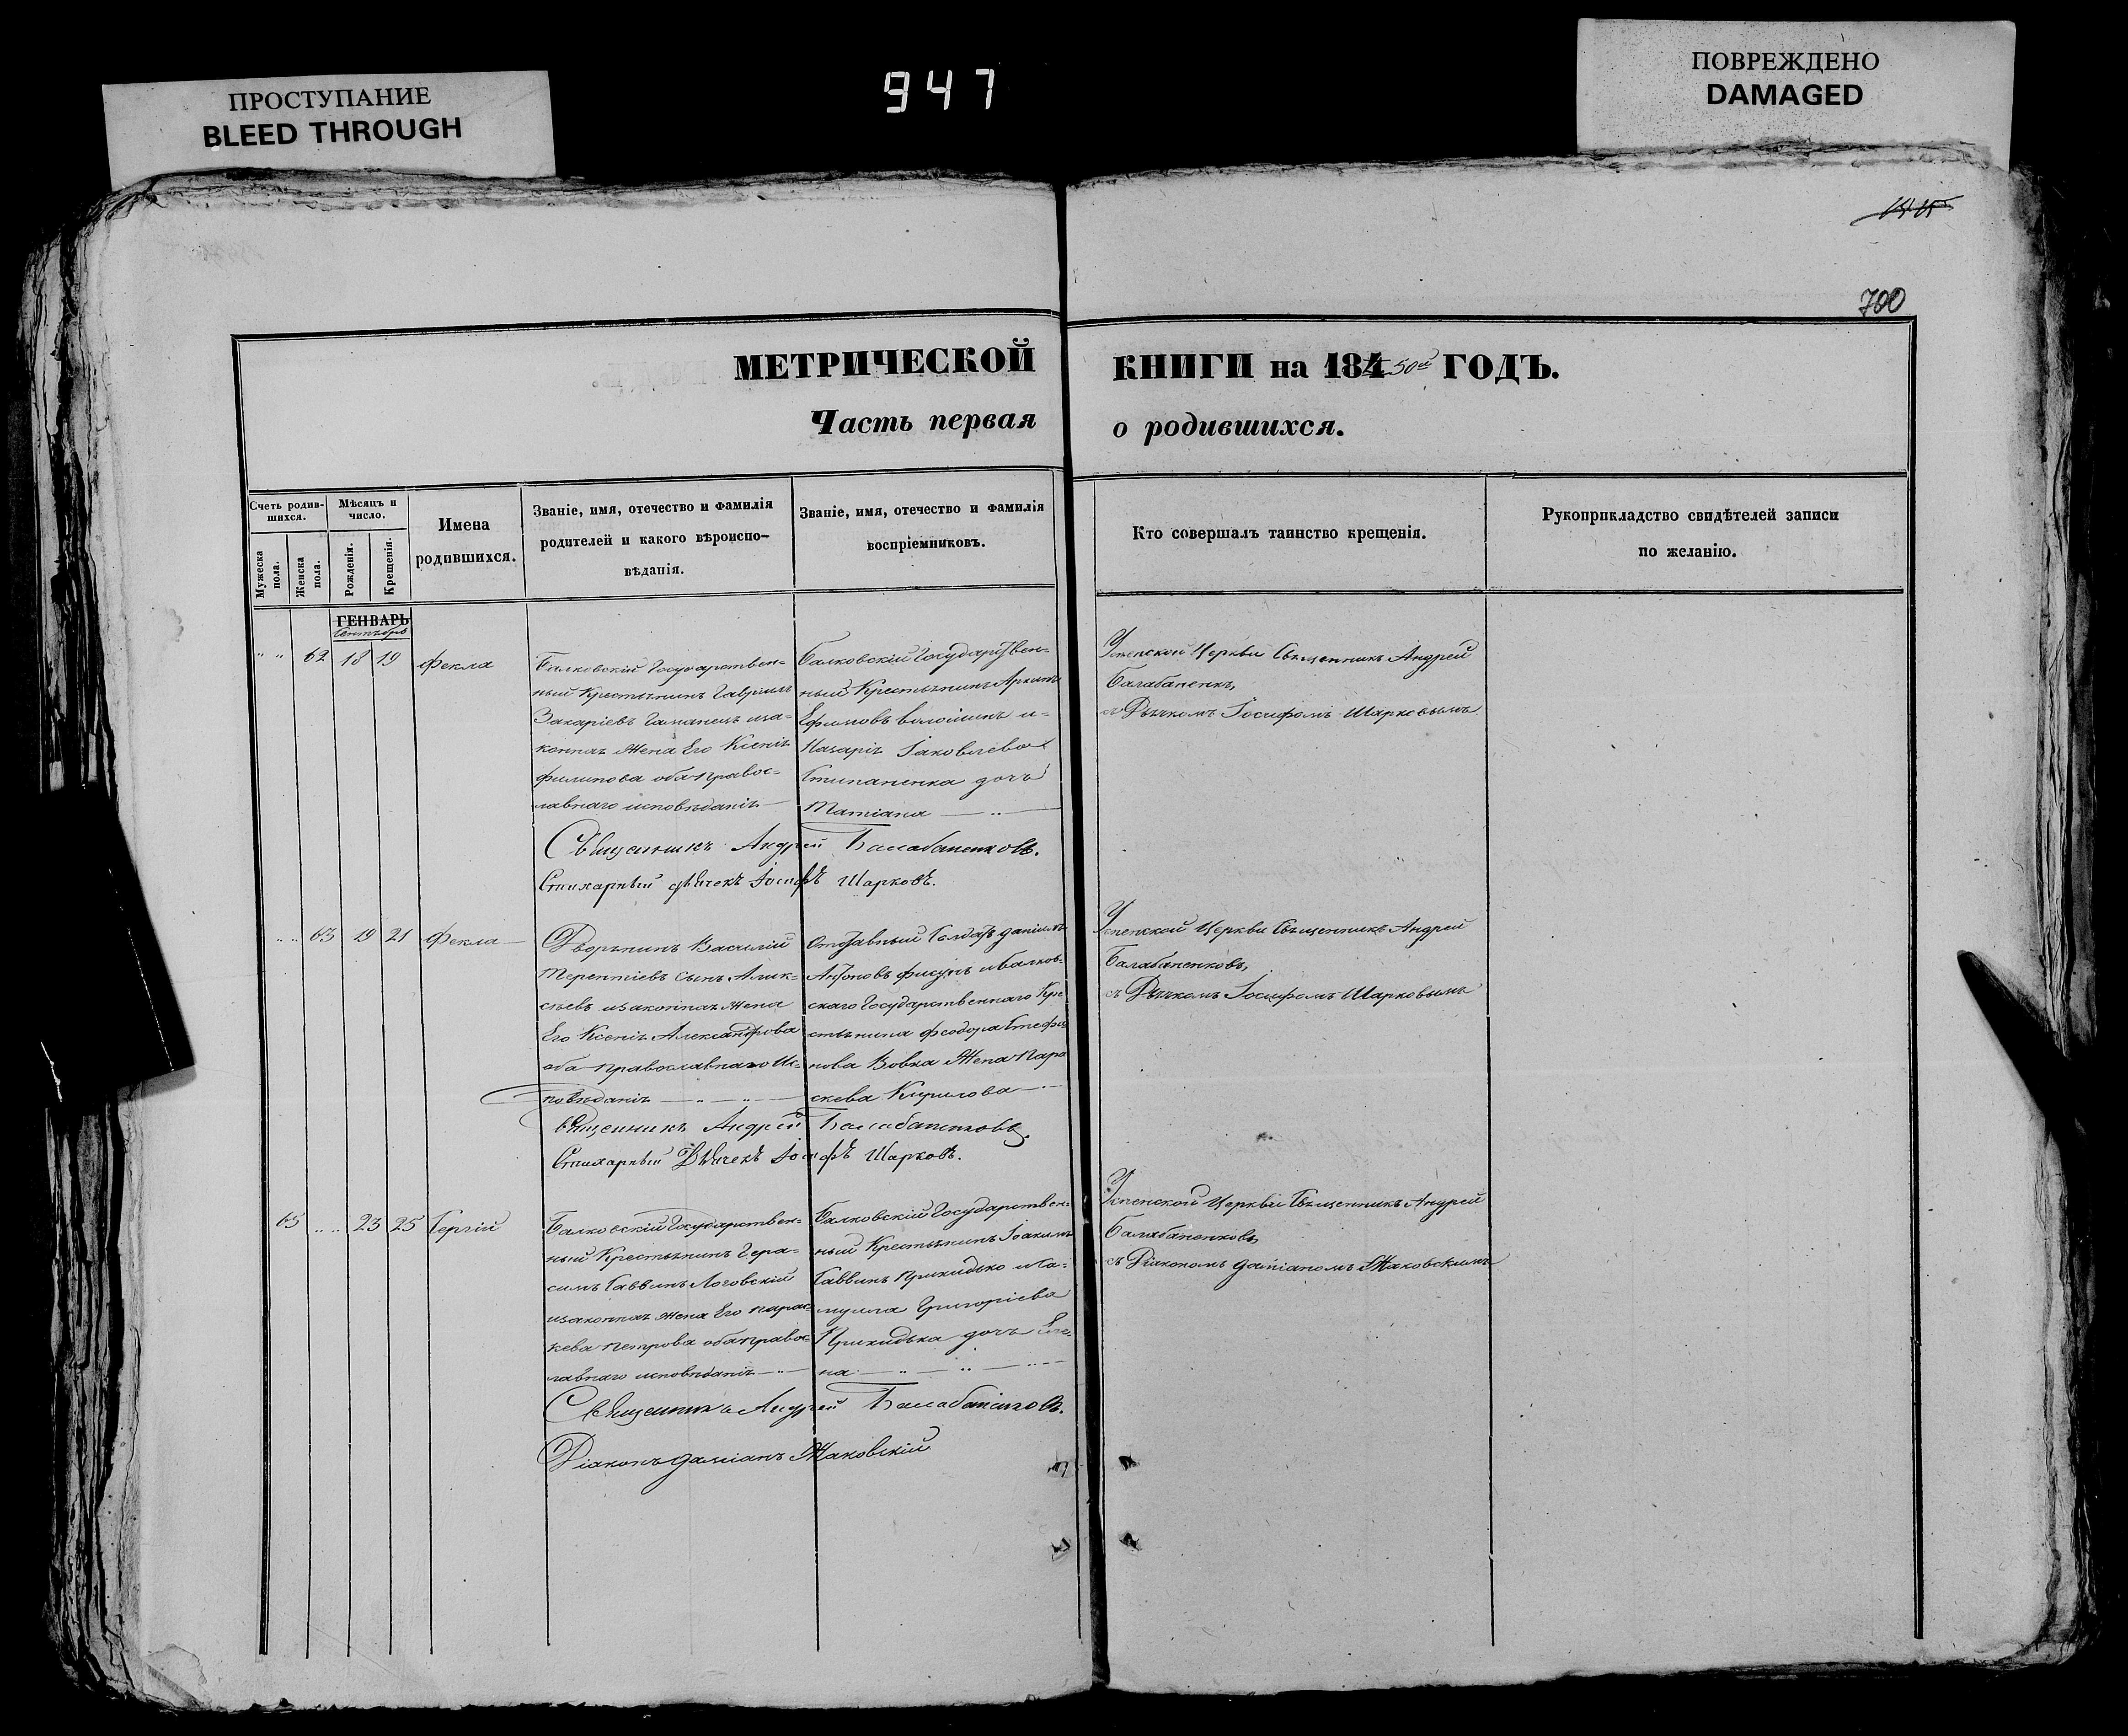 ПРОСТУПАНИЕ
BLEED THROUGH
947
ПОВРЕЖДЕНО
DAMAGED
700
МЕТРИЧЕСКОЙ КНИГИ на 184 50й ГОДЪ.
Часть первая о родившихся.
Счетъ родив-
шихся.
Мужеска пола.
Женска пола.
Мѣсяцъ и
число.
Рожденія.
Крещенія.
Имена
родившихся.
Званіе, имя, отечество и фамилія
родителей и какого вѣроиспо-
вѣданія.
Званіе, имя, отечество и фамилія
воспріемниковъ.
Кто совершалъ таинство крещенія.
Рукоприкладство свидѣтелей записи
по желанію.
ГЕНВАРЬ
Сентябрь
" " 62 18 19 Фекла
Балковскій Государствен-
ный Крестьянинъ Гавріилъ
Захаріевъ
жена Его Ксенія
Филипова оба Правос-
лавнаго исповѣданія
Балковскій Государствен-
ный Крестьянинъ
Ефимовъ Волошинъ и
Назарія Іаковлева
Степаненка дочь
Татіана
Успенской Церкви Священникъ Андрей
Балабаненковъ
съ Дьячкомъ Іосифомъ Шарковымъ
Священникъ Андрей Балабаненковъ.
Стихарный дьячекъ Іосифъ Шарковъ.
" " 63 19 21 Фекла
Дворянинъ Василій
Терентіевъ сынъ Алек-
сѣевъ изаконная жена
Его Ксенія Александрова
оба Православнаго Ис-
повѣданія
Отставный Солдатъ Даніилъ
Антоновъ Фисунъ и Балков-
скаго Государственнаго Кре
стьянина Феодора Стефа
нова Вовка Жена Пара
скева Кирилова
Успенской Церкви Священникъ Андрей
Балабаненковъ,
съ Дьячкомъ Іосифомъ Шарковымъ
Священникъ Андрей Балабаненковъ.
Стихарный Дьячекъ Іосифъ Шарковъ.
65 " " 23 25 Сергій
Балковскій Государствен-
ный Крестьянинъ Гера-
симъ Саввинъ Логовскій
изаконная жена Его Парас-
кева Петрова оба Правос-
лавнаго исповѣданія
Балковскій Государствен-
ный Крестьянинъ Іоакимъ
Саввинъ Прикидько и Са-
муила Григоріева
Прикидька дочь Еле-
на
Успенской Церкви Священникъ Андрей
Балабаненковъ,
съ Діакономъ Даміаномъ Жаковскимъ
Священникъ Андрей Балабаненковъ.
Діаконъ Даміанъ Жаковскій